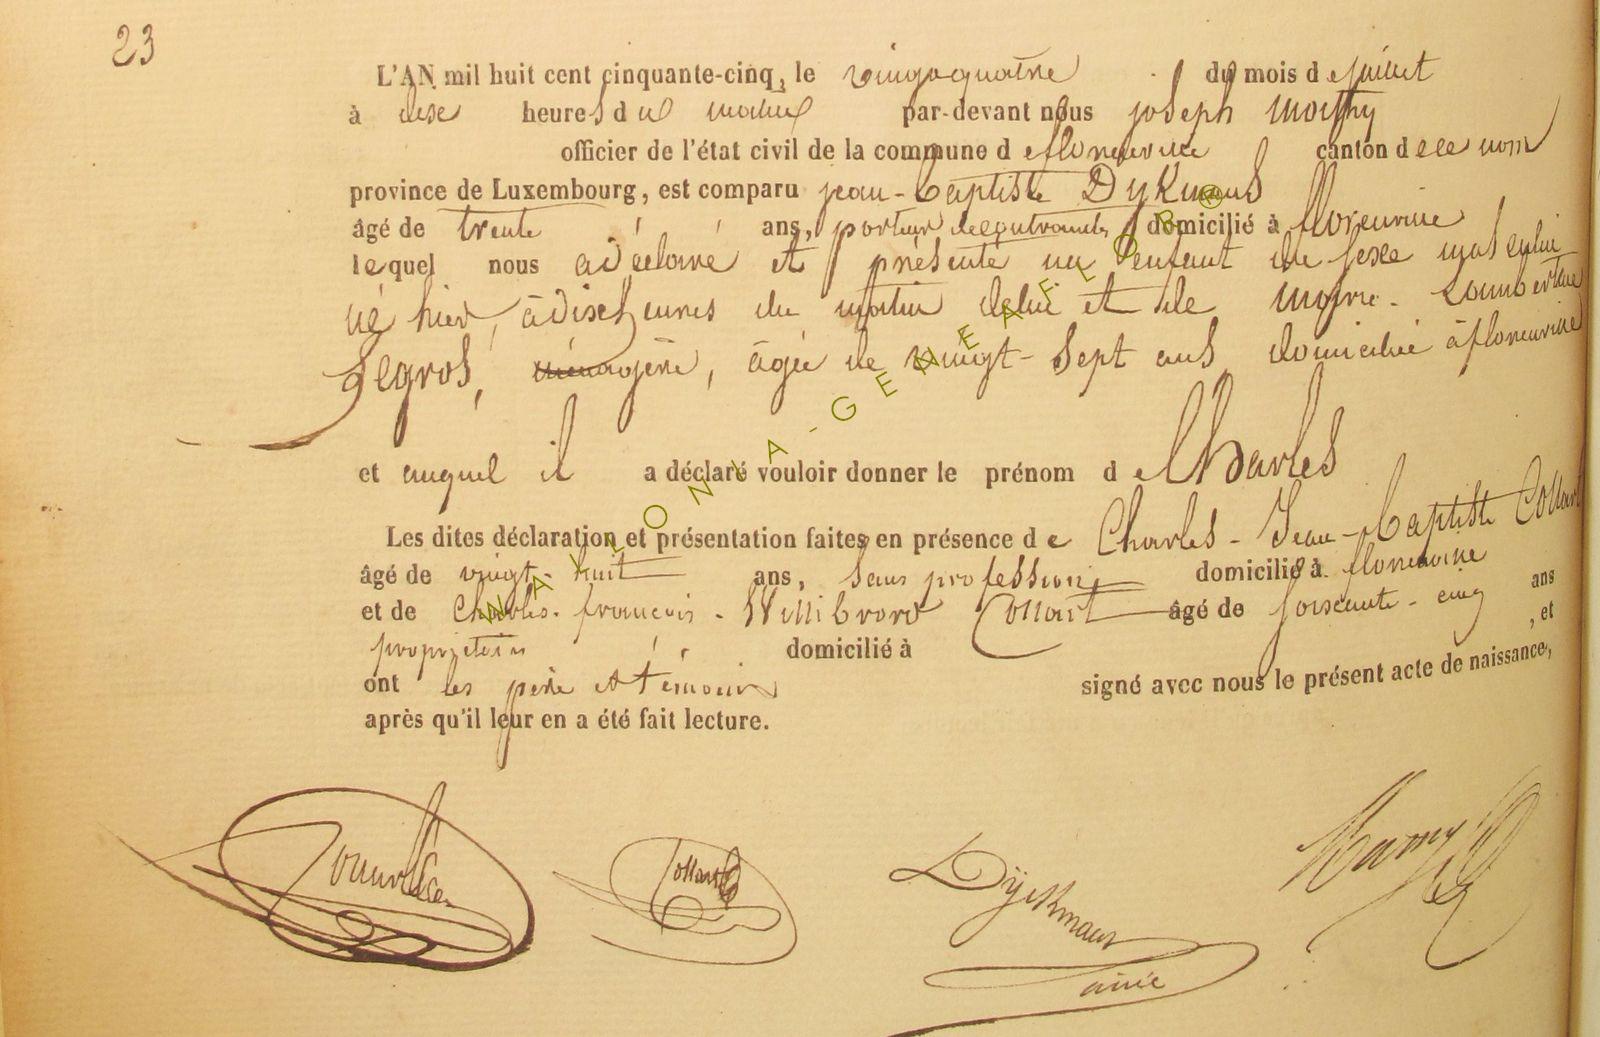 23
L'AN mil huit cent cinquante-cinq, le vingt quatre du mois de juillet
à dix heures du matin par-devant nous joseph
officier de l'état civil de la commune de florenville canton de ce nom
province de Luxembourg, est comparu jean-baptiste Dykmans
âgé de trente ans, porteur de contraintes domicilié à florenville
lequel nous a déclaré et présenté un enfant du sexe masculin
né hier, à dix heures du matin de lui et de marie-Lambertine
Segros, ménagère, âgée de vingt-sept ans, domiciliée à florenville
et auquel il a déclaré vouloir donner le prénom de Charles
Les dites déclaration et présentation faites en présence de Charles-Jean-baptiste Collart
âgé de vingt-huit ans, sans profession, domicilié à florenville
et de Charles-françois-Willibrord Collart âgé de soixante-cinq ans
propriétaire domicilié à , et
ont les père et témoins signé avec nous le présent acte de naissance,
après qu'il leur en a été fait lecture.
Collart
Dÿckmans
ainé
WALLONIA-GENEAFLOBR®